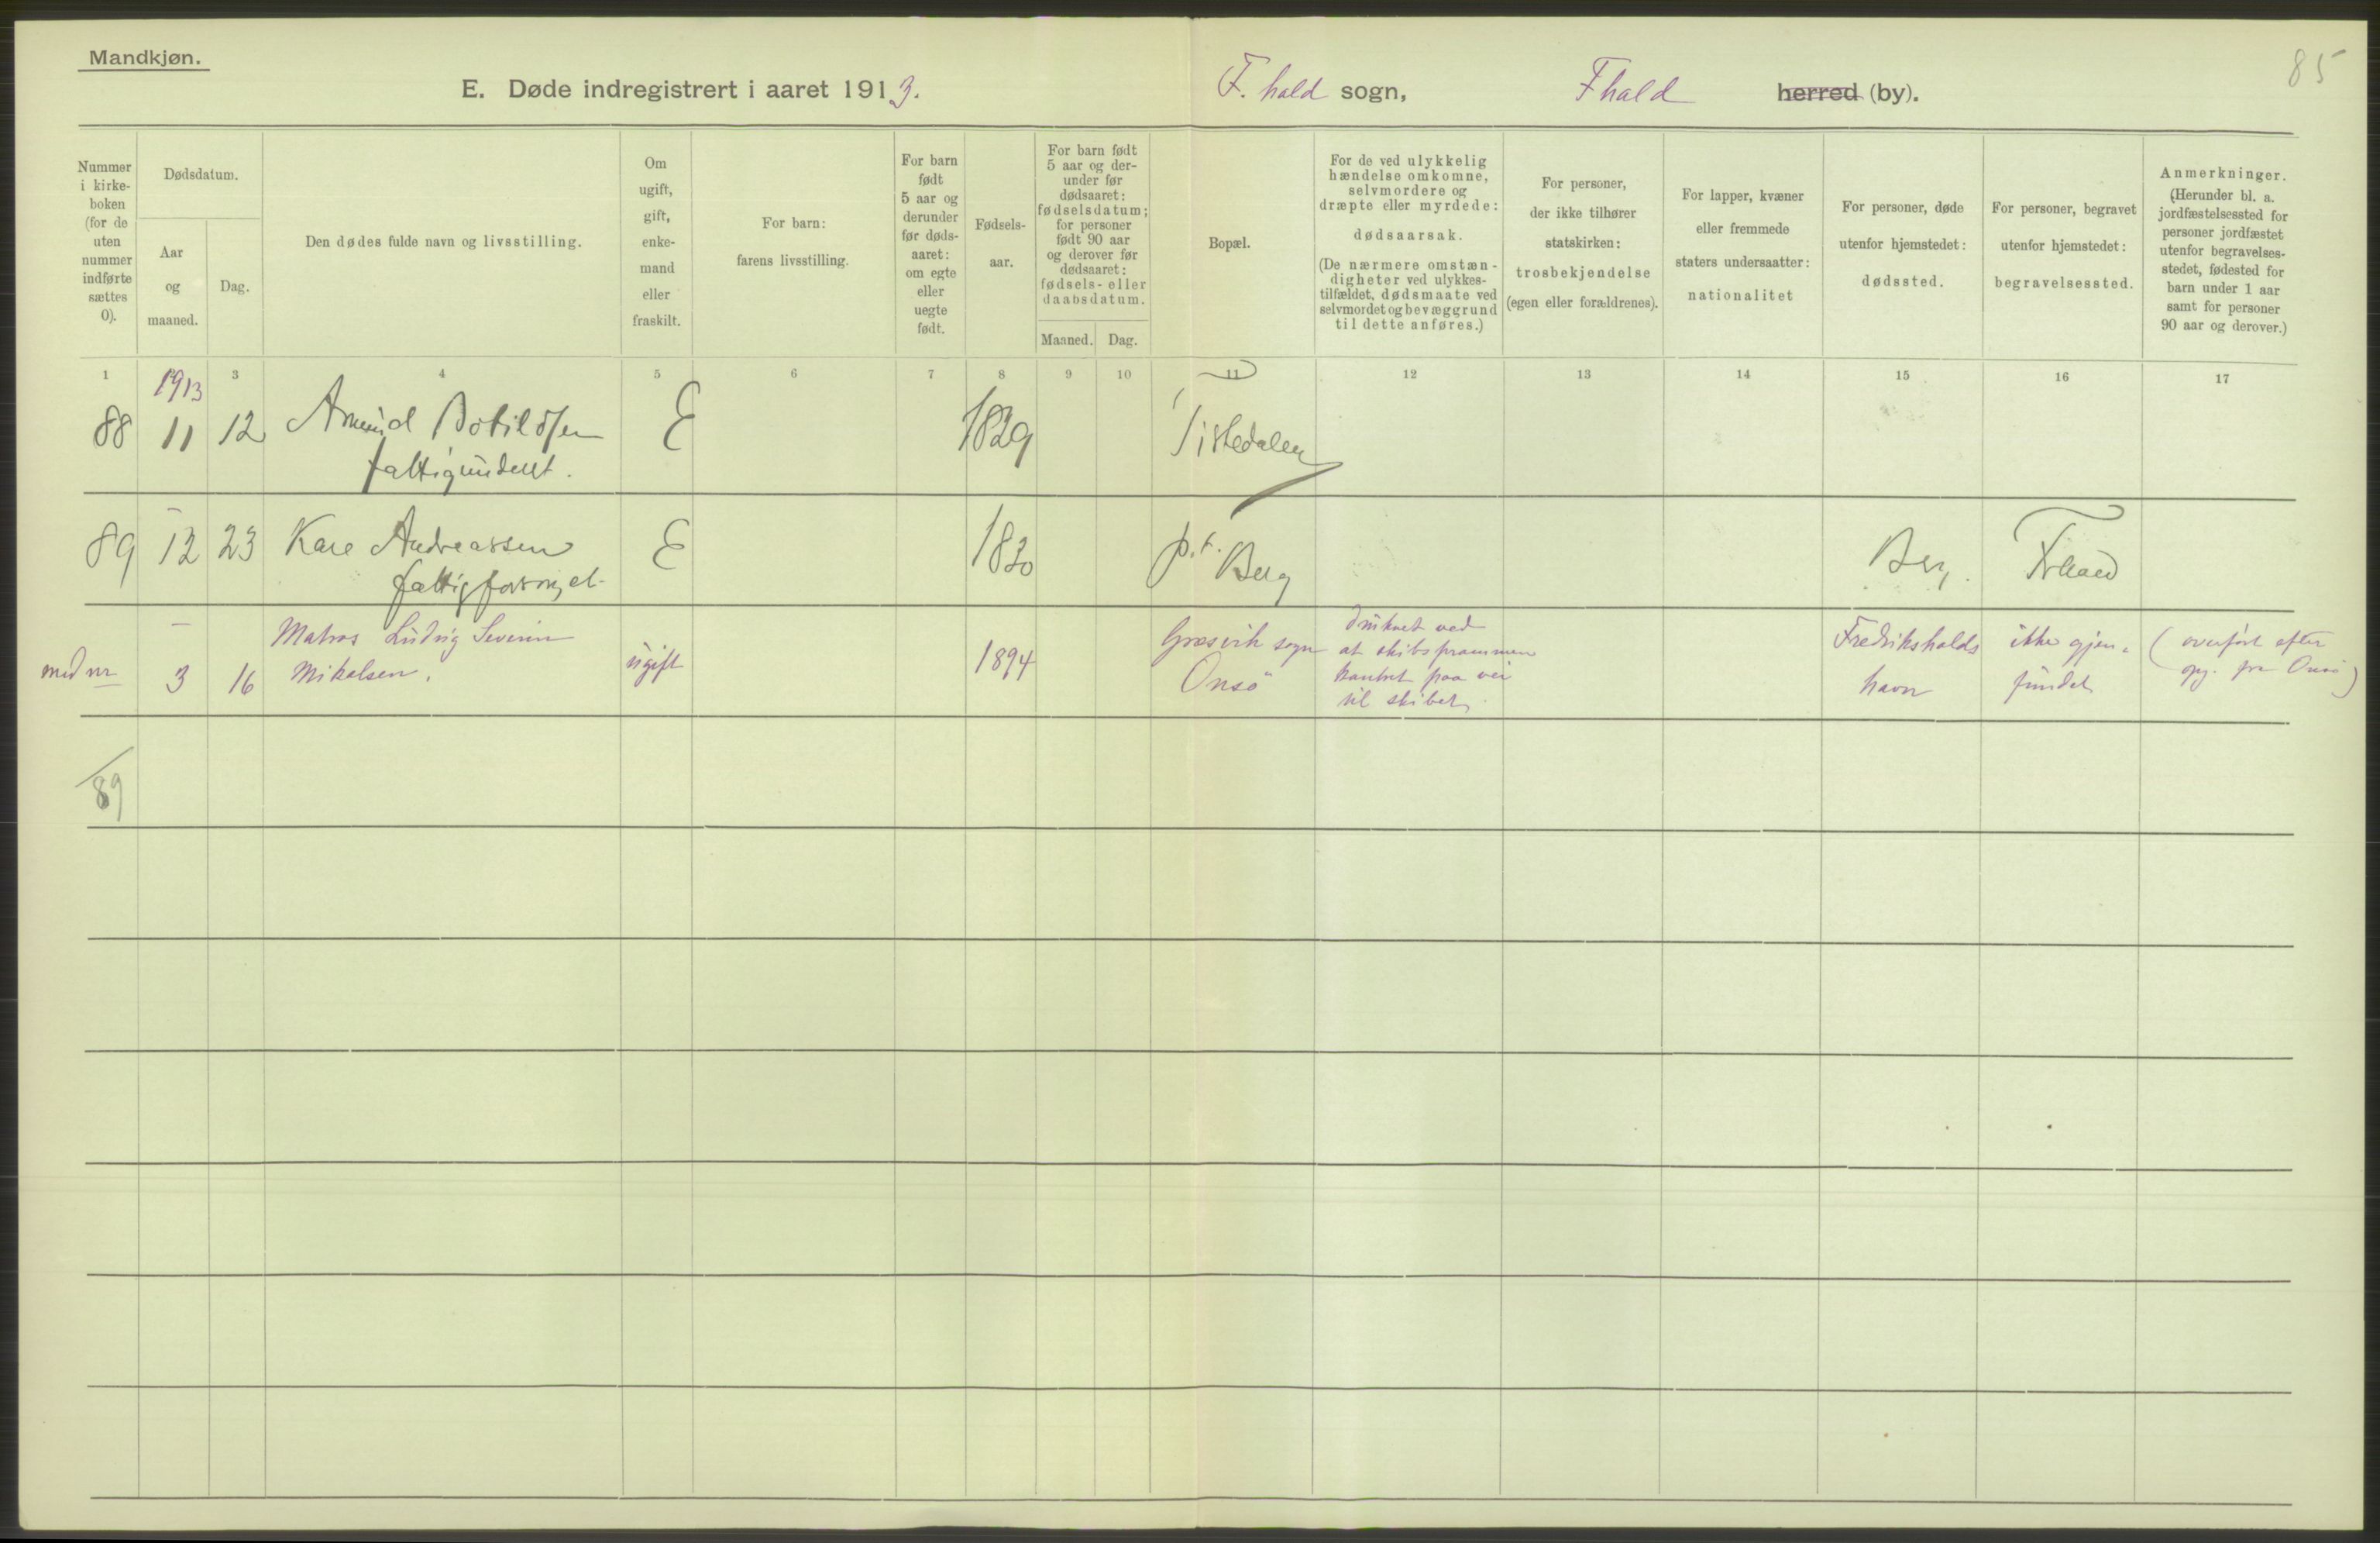 Mandkjøn.
85
E. Døde indregistrert i aaret 1913. F. hald sogn, Fhald herred (by).
Nummer i kirke- boken (for de uten nummer indførte sættes 0).
Dødsdatum.
Aar og maaned.
Dag.
Den dødes fulde navn og livsstilling.
Om ugift, gift, enke- mand eller fraskilt.
For barn: farens livsstilling.
For barn født 5 aar og derunder før døds- aaret: om egte eller uegte født.
Fødsels- aar.
For barn født 5 aar og der- under før dødsaaret: fødselsdatum; for personer født 90 aar og derover før dødsaaret: fødsels- eller daabsdatum.
Maaned. Dag.
Bopæl.
For de ved ulykkelig hændelse omkomne, selvmordere og dræpte eller myrdede: dødsaarsak. (De nærmere omstæn- digheter ved ulykkes- tilfældet, dødsmaate ved selvmordet og bevæggrund til dette anføres.)
For personer, der ikke tilhører statskirken: trosbekjendelse (egen eller forældrenes).
For lapper, kvæner eller fremmede staters undersaatter: nationalitet
For personer, døde utenfor hjemstedet: dødssted.
For personer, begravet utenfor hjemstedet: begravelsessted.
Anmerkninger. (Herunder bl. a. jordfæstelsessted for personer jordfæstet utenfor begravelses- stedet, fødested for barn under 1 aar samt for personer 90 aar og derover.)
1 3 4 5 6 7 8 9 10 11 12 13 14 15 16 17
1913
88 11 12 Amund Botilsen E 1829 Tistedalen
fattigunderst.
89 12 23 Kare Andreassen E 1830 p.t. Berg Berg. Frhald
fattigforsørget
med nr 3 16 Matros Ludvig Severin
Mikalsen. ugift 1894 Græsvik sogn
Onsö
druknet ved
at skibsprammen
kantret paa vei
til skibet.
Fredrikshalds
havn
ikke gjen-
fundet
(overført efter
opg. fra Onsö)
89